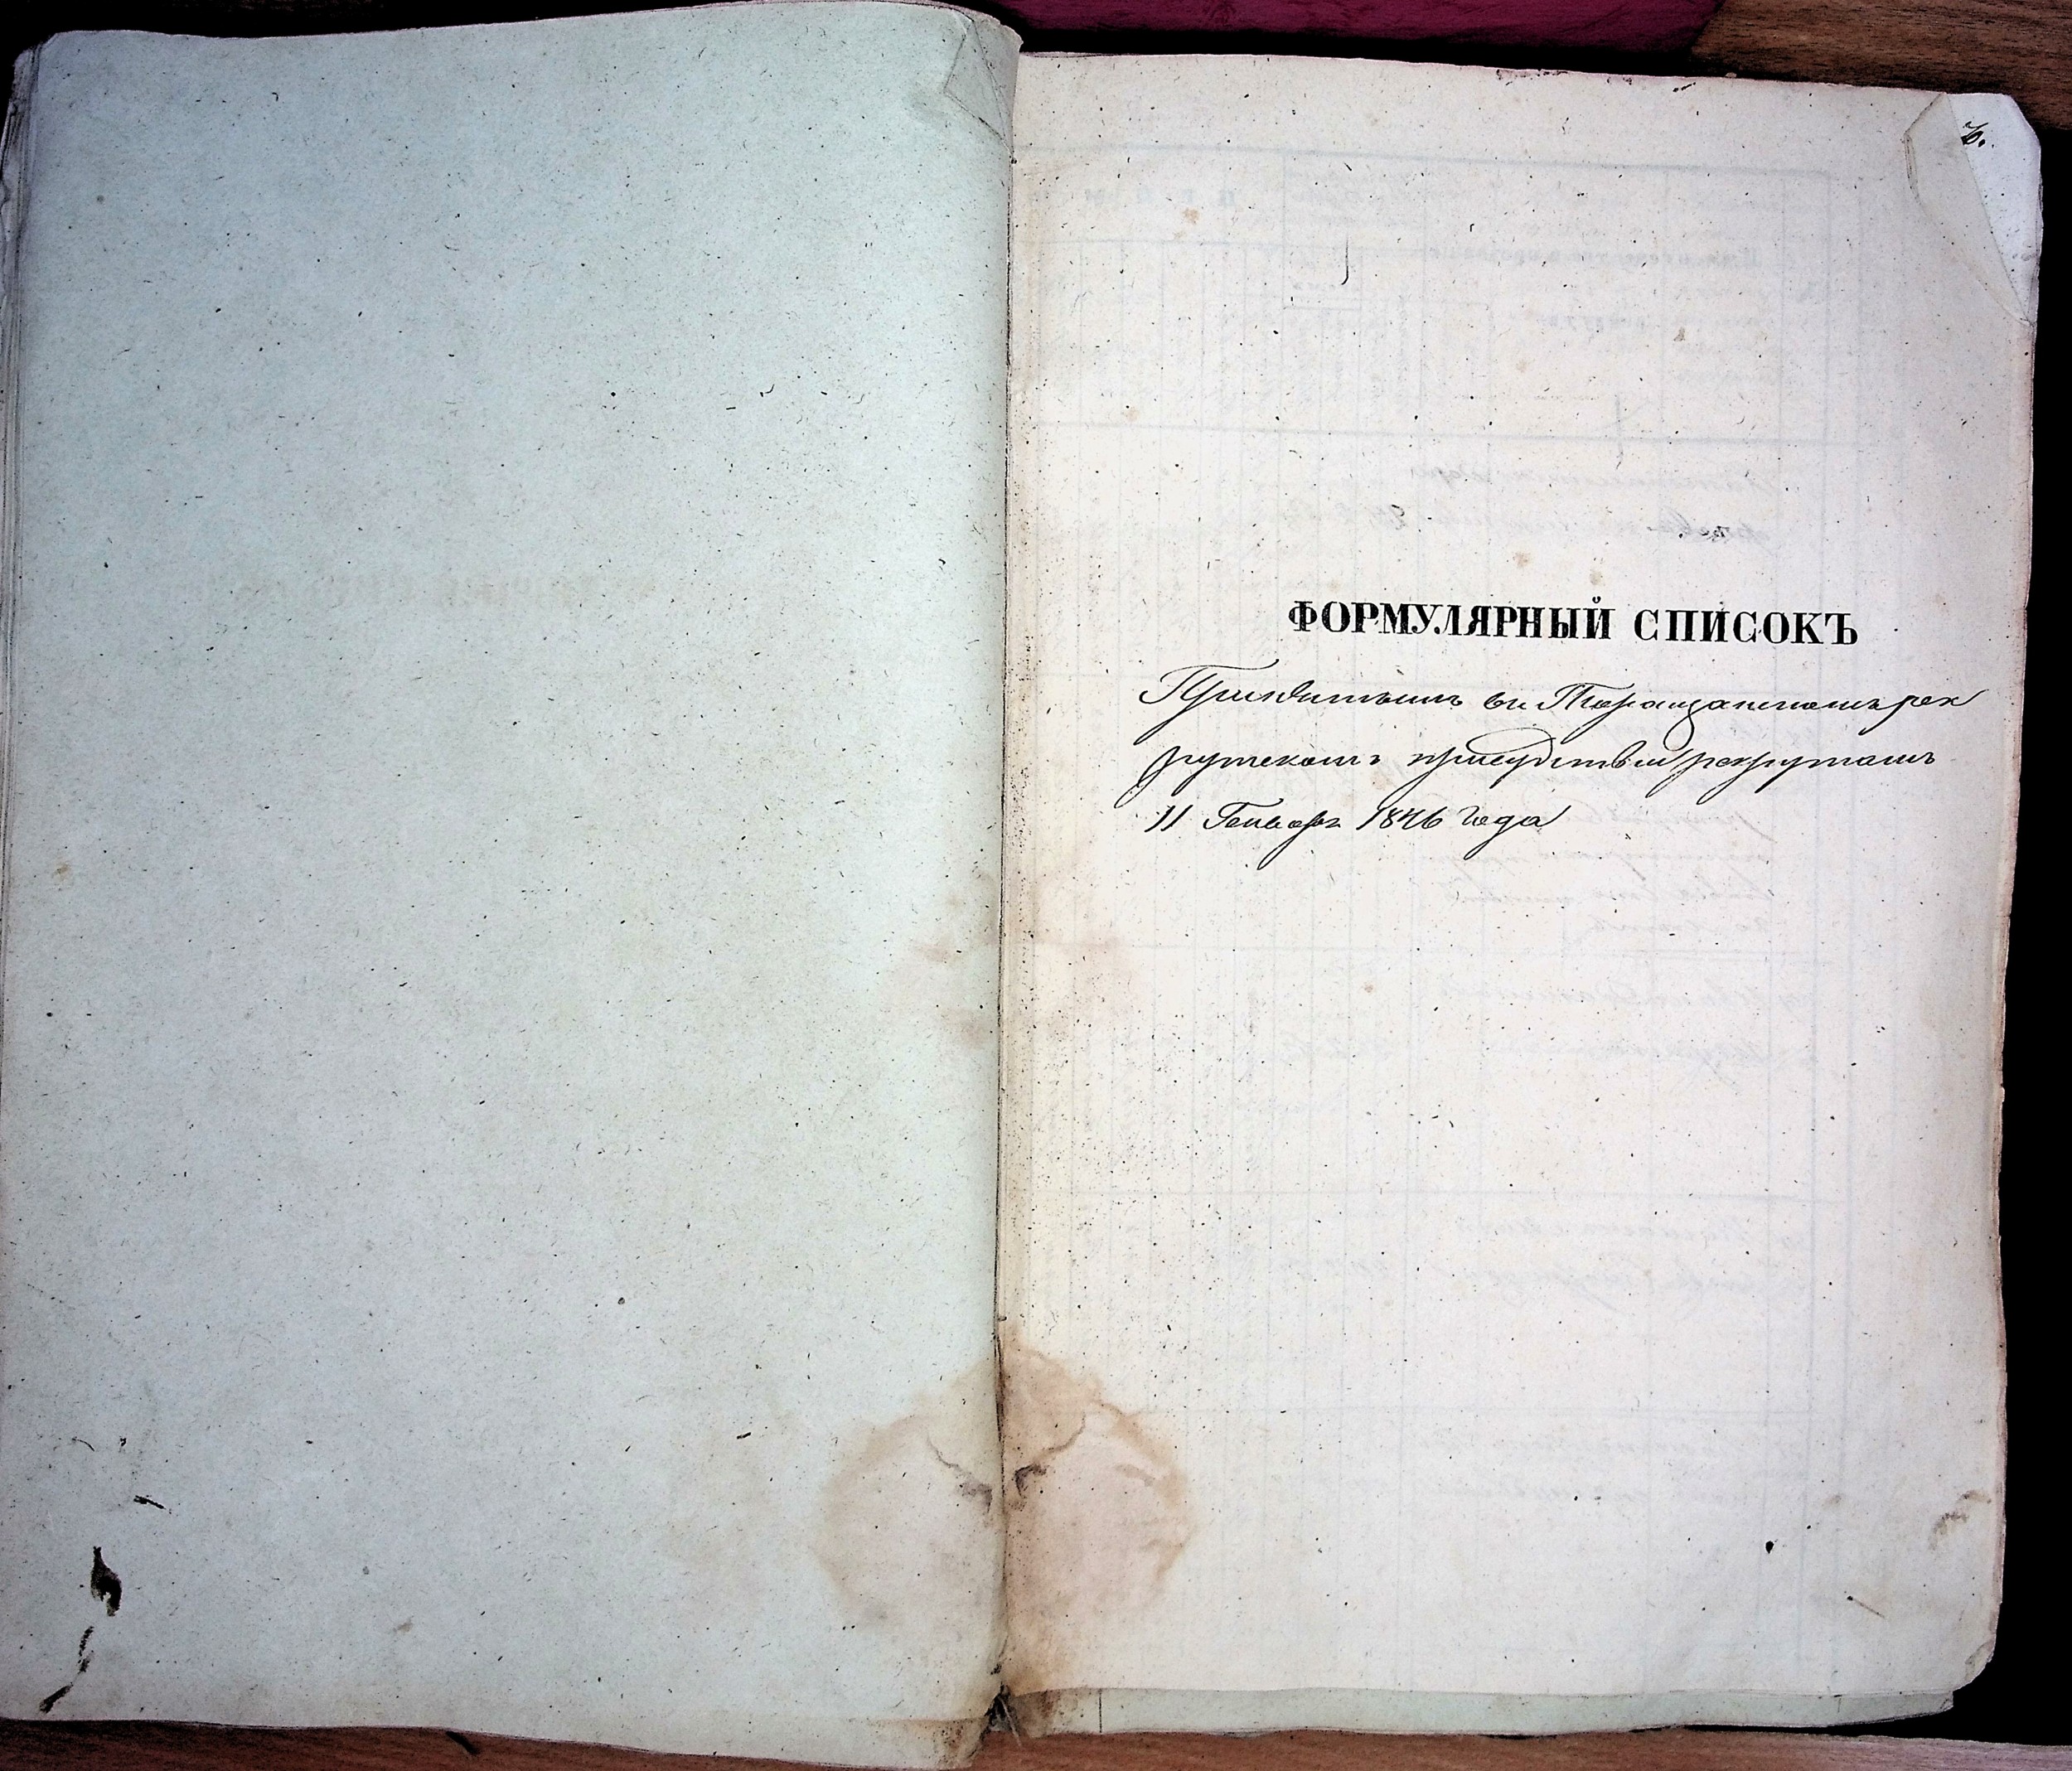 ФОРМУЛЯРНЫЙ СПИСОКЪ
Принятымъ въ Таращанскомъ рек
рутскомъ присудствіи рекрутамъ
11 Генваря 1846 года